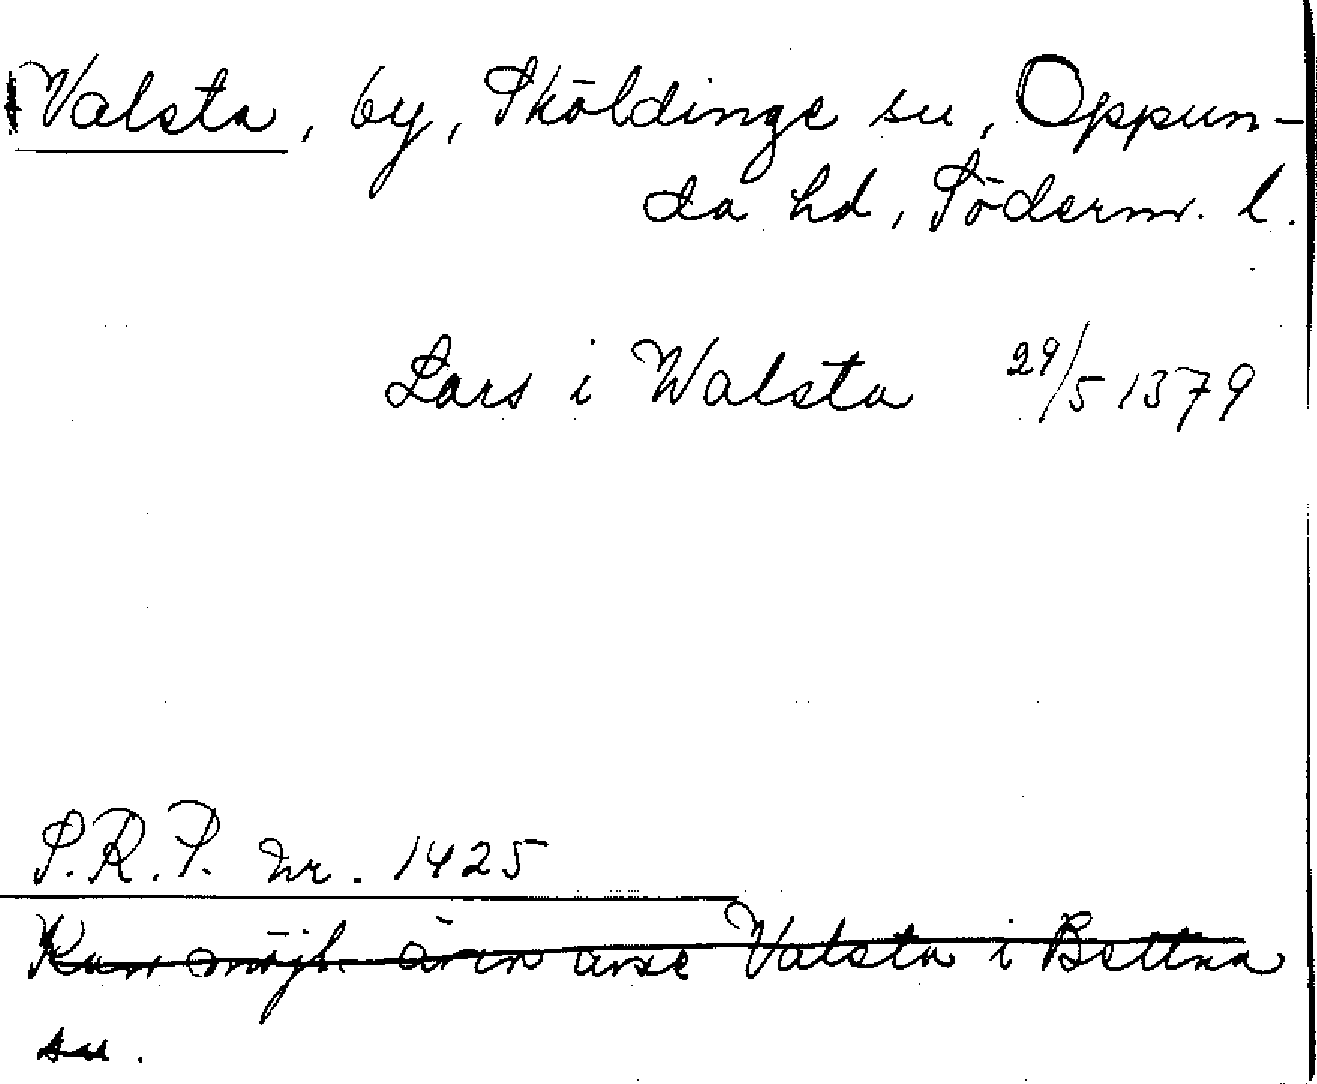 Valsta, by, Sköldinge sn, Oppun-
da hd, Söderm. l.
Lars i Walsta 29/5 1379
S.R.P. nr. 1425
Kan möjl. även avse Valsta i Bettna
sn.